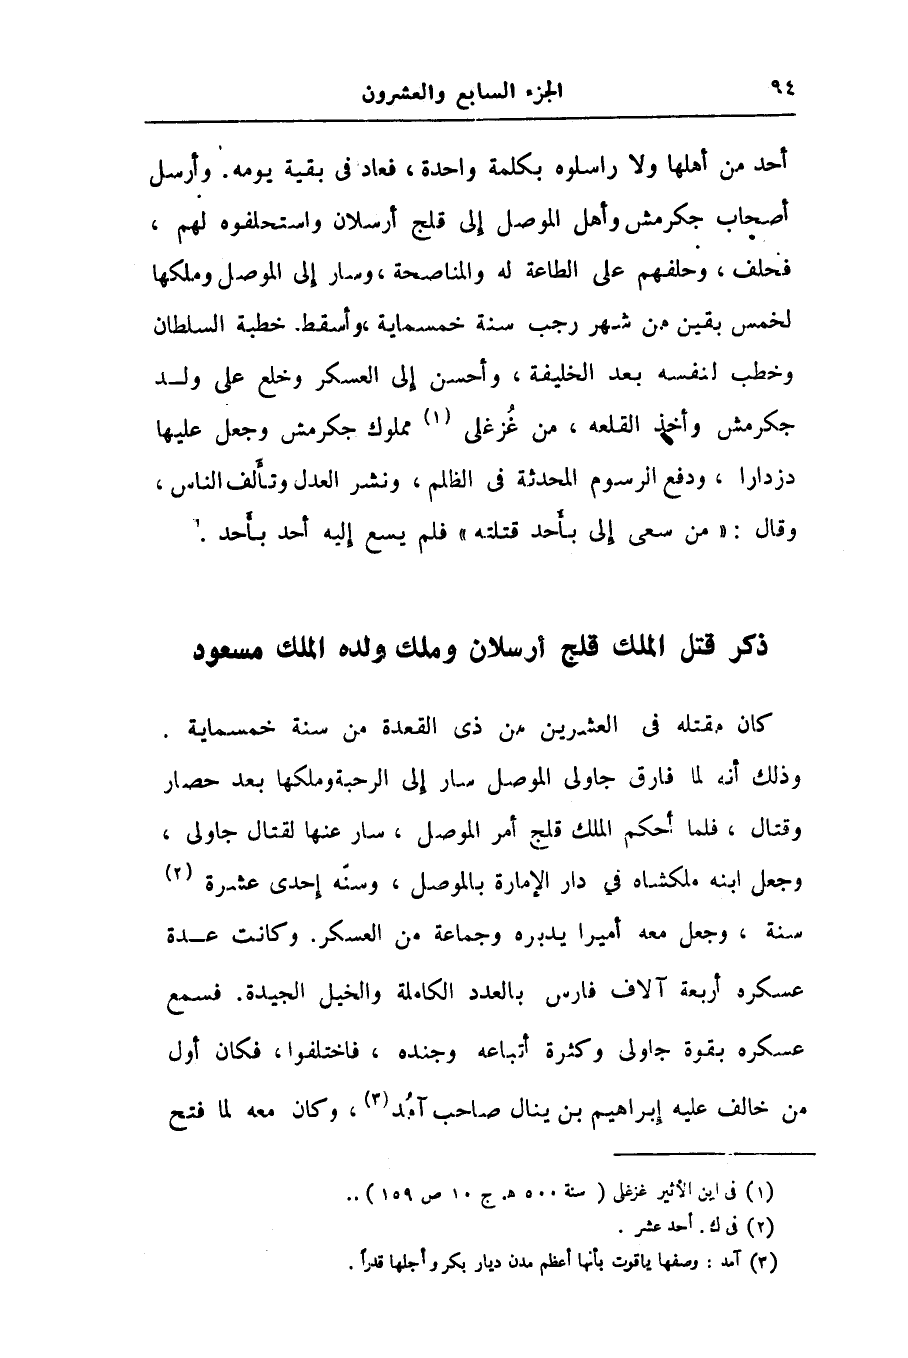 ٩٤
الجزء السابع والعشرون
أحد من أهلها ولا راسلوه بكلمة واحدة ، فعاد فى بقية يومه . وأرسل
أصحاب جكرمش وأهل الموصل إلى قلج أرسلان واستحلفوه لهم ،
فحلف ، وحلفهم على الطاعة له والمناصحة ، وسار إلى الموصل وملكها
لخمس بقين من شهر رجب سنة خمسماية ، وأسقط خطبة السلطان
وخطب لنفسه بعد الخليفة ، وأحسن إلى العسكر وخلع على ولد
جكرمش وأخذ القلعه ، من غُزغلى (١) مملوك جكرمش وجعل عليها
دزدارا ، ودفع الرسوم المحدثة فى الظلم ، ونشر العدل وتألَّف الناس ،
وقال : « من سعى إلى بأحد قتلته » فلم يسع إليه أحد بأحد .
ذكر قتل الملك قلج أرسلان وملك ولده الملك مسعود
كان مقتله فى العشرين من ذى القعدة من سنة خمسماية .
وذلك أنه لما فارق جاولى الموصل سار إلى الرحبة وملكها بعد حصار
وقتال ، فلما أحكم الملك قلج أمر الموصل ، سار عنها لقتال جاولى ،
وجعل ابنه ملكشاه في دار الإمارة بالموصل ، وسنّه إحدى عشرة (٢)
سنة ، وجعل معه أميرا يدبره وجماعة من العسكر. وكانت عدة
عسكره أربعة آلاف فارس بالعدد الكاملة والخيل الجيدة. فسمع
عسكره بقوة جاولى وكثرة أتباعه وجنده ، فاختلفوا ، فكان أول
من خالف عليه إبراهيم بن ينال صاحب آمُد (٣) ، وكان معه لما فتح
(١) فى ابن الأثير غزغلى ( سنة ٥٠٠ هـ. ج ١٠ ص ١٥٩ ) ..
(٢) فى ك . أحد عشر .
(٣) آمد : وصفها ياقوت بأنها أعظم مدن ديار بكر وأجلها قدراً .